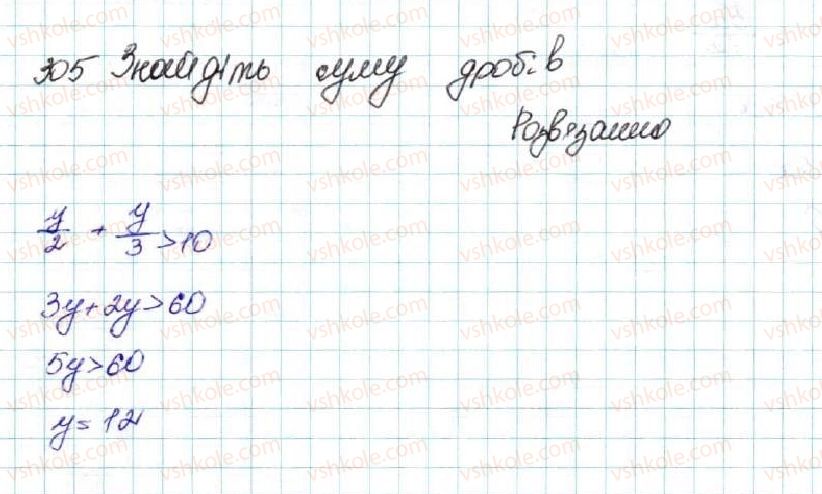 305 Знайдіть суму дробів
Розв'язання
y/2 + y/3 > 10
3y + 2y > 60
5y > 60
y = 12